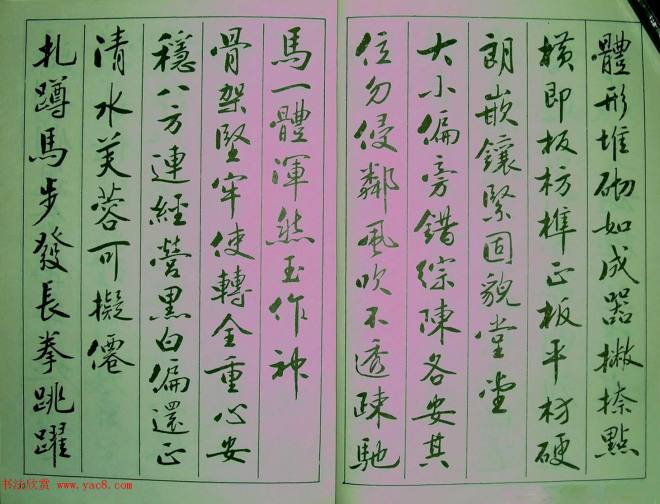 體形堆砌如成器撇捺點
橫即板枋榫正板平材硬
朗嵌鑲緊固貌堂堂
大小偏旁錯綜陳各安其
位勿侵鄰風吹不透疎馳
馬一體渾然玉作神
骨架堅牢使轉全重心安
穩八方連經營黑白偏還正
清水芙蓉可擬僊
扎蹲馬步發長拳跳躍
书法欣赏 www.yac8.com